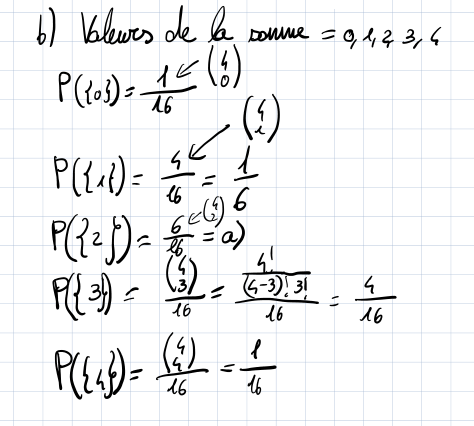 b) Valeurs de la somme = 0, 1, 2, 3, 4
P({0}) = 1/16 ← (4 0)
P({1}) = 4/16 = 1/6 ← (4 1)
P({2}) = 6/16 = a) ← (4 2)
P({3}) = (4 3)/16 = (4!/((4-3)! 3!))/16 = 4/16
P({4}) = (4 4)/16 = 1/16